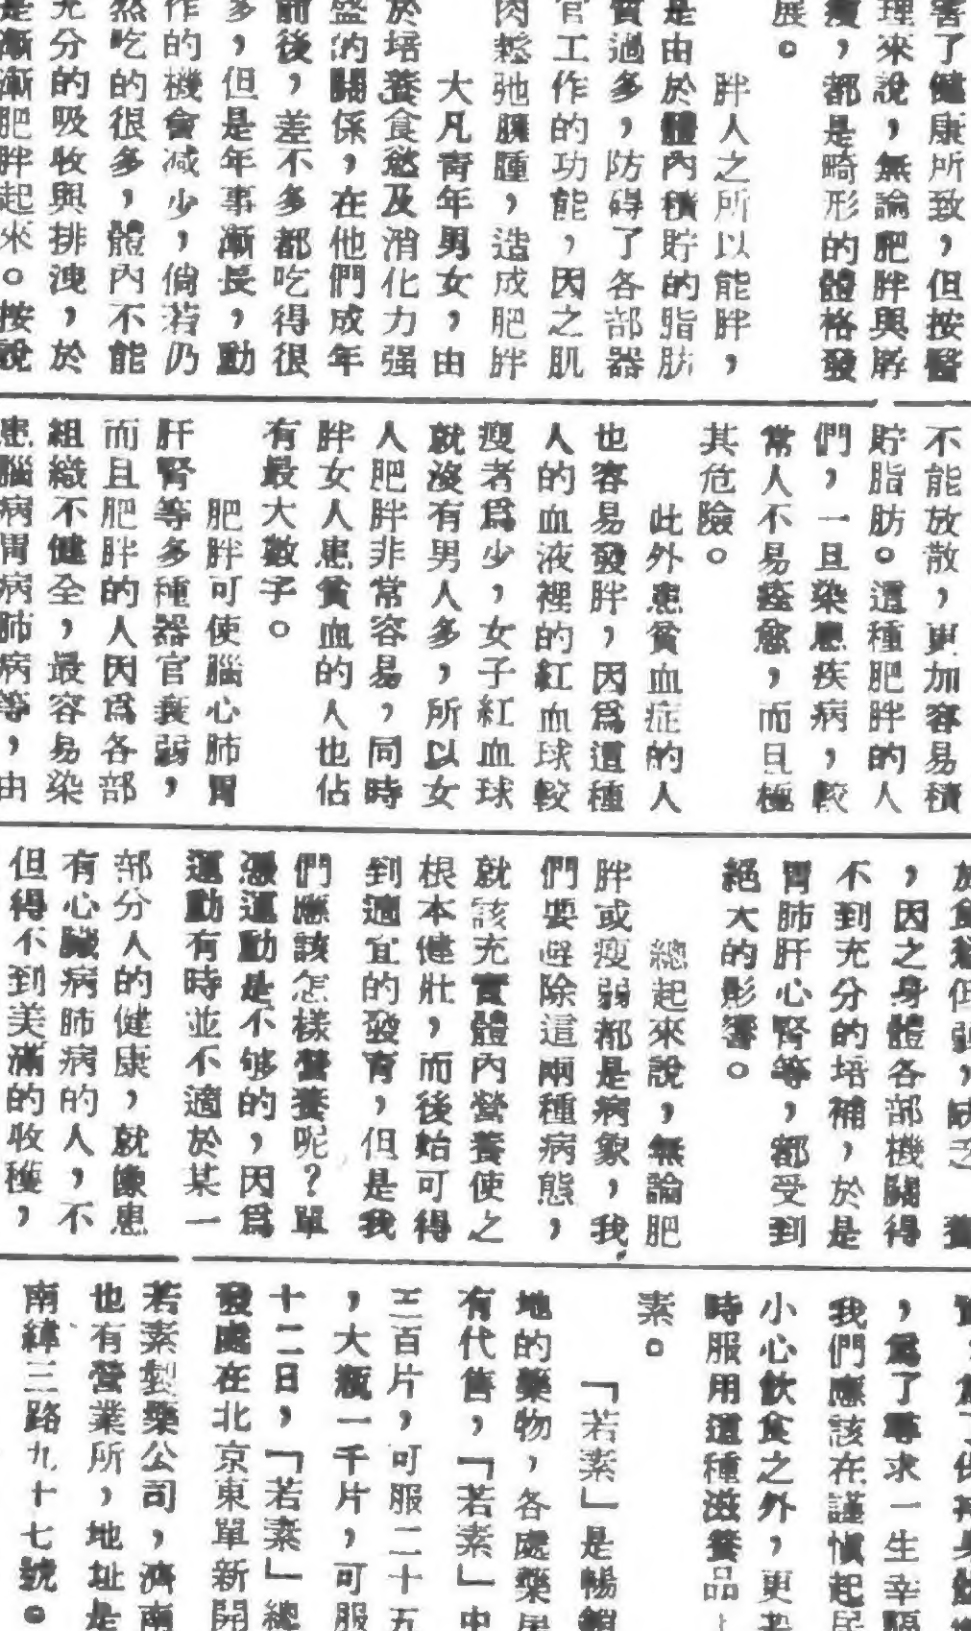 害了健康所致，但按醫
理來說，無論肥胖與瘠
瘦，都是畸形的體格發
展。
胖人之所以能胖，
是由於體內積貯的脂肪
質過多，防碍了各部器
官工作的功能，因之肌
肉鬆弛臃腫，造成肥胖
大凡青年男女，由
於培養食慾及消化力强
盛的關係，在他們成年
前後，差不多都吃得很
多，但是年事漸長，動
作的機會减少，倘若仍
然吃的很多，體內不能
充分的吸收與排洩，於
是漸漸肥胖起來。按說
不能放散，更加容易積
貯脂肪。這種肥胖的人
們，一旦染患疾病，較
常人不易痊愈，而且極
其危險。
此外患貧血症的人
也容易發胖，因爲這種
人的血液裡的紅血球較
瘦者爲少，女子紅血球
就沒有男人多，所以女
人肥胖非常容易，同時
胖女人患貧血的人也佔
有最大數字。
肥胖可使腦心肺胃
肝腎等多種器官衰弱，
而且肥胖的人因爲各部
組織不健全，最容易染
患腦病胃病肺病等，由
於食慾但强，缺乏 養
，因之身體各部機關得
不到充分的培補，於是
胃肺肝心腎等，都受到
絕大的影響。
總起來說，無論肥
胖或瘦弱都是病象，我
們要避除這兩種病態，
就該充實體內營養使之
根本健壯，而後始可得
到適宜的發育，但是我
們應該怎樣營養呢？單
憑運動是不够的，因爲
運動有時並不適於某一
部分人的健康，就像患
有心臟病肺病的人，不
但得不到美滿的收穫，
，爲了尋求一生幸福
我們應該在謹愼起居
小心飲食之外，更
時服用這種滋養品
素。
「若素」是暢銷
地的藥物，各處藥房
有代售，「若素」中
三百片，可服二十五
，大瓶一千片，可服
十二日，「若素」總
發處在北京東單新開
若素製藥公司，濟南
也有營業所，地址是
南緯三路九十七號。